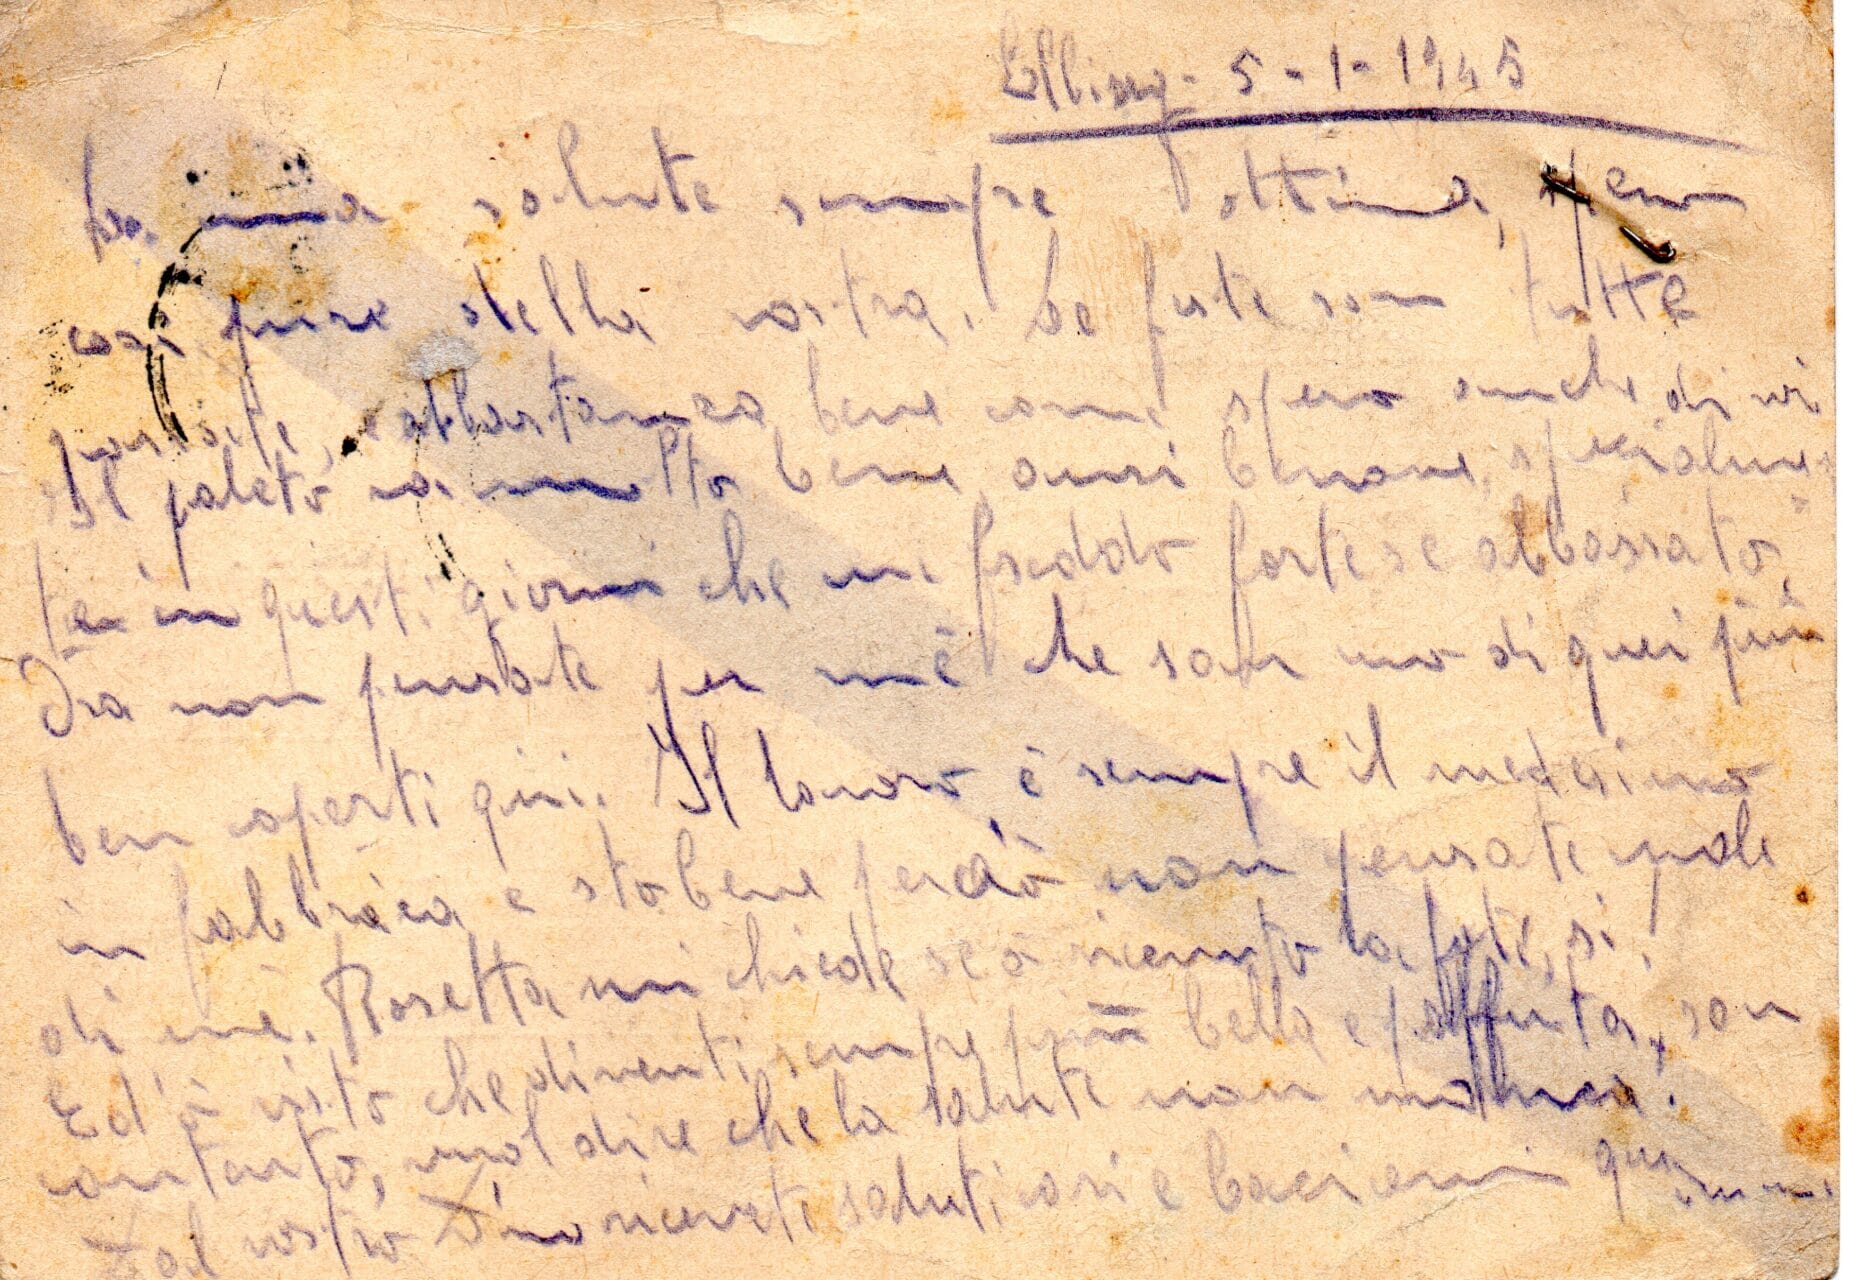 Elbing - 5-1-1945
La mia salute sempre ottima, spero
così pure della vostra. Le feste son tutte
passate, abbastanza bene come spero anche di voi
Il paletò va molto bene ansi benone, specialmen
te in questi giorni che un freddo forte se abbassato,
Ora non pensate per mè che son uno di quei più
ben coperti qui. Il lavoro è sempre il medesimo
in fabbrica e sto bene perciò non pensate male
di mè. Rosetta mi chiede se ò ricevuto la foti, si.
Ed ò visto che diventi sempre più bella e paffuta, son
contento, vuol dire che la salute non manca.
Dal vostro Dino ricevete saluti cari e bacioni